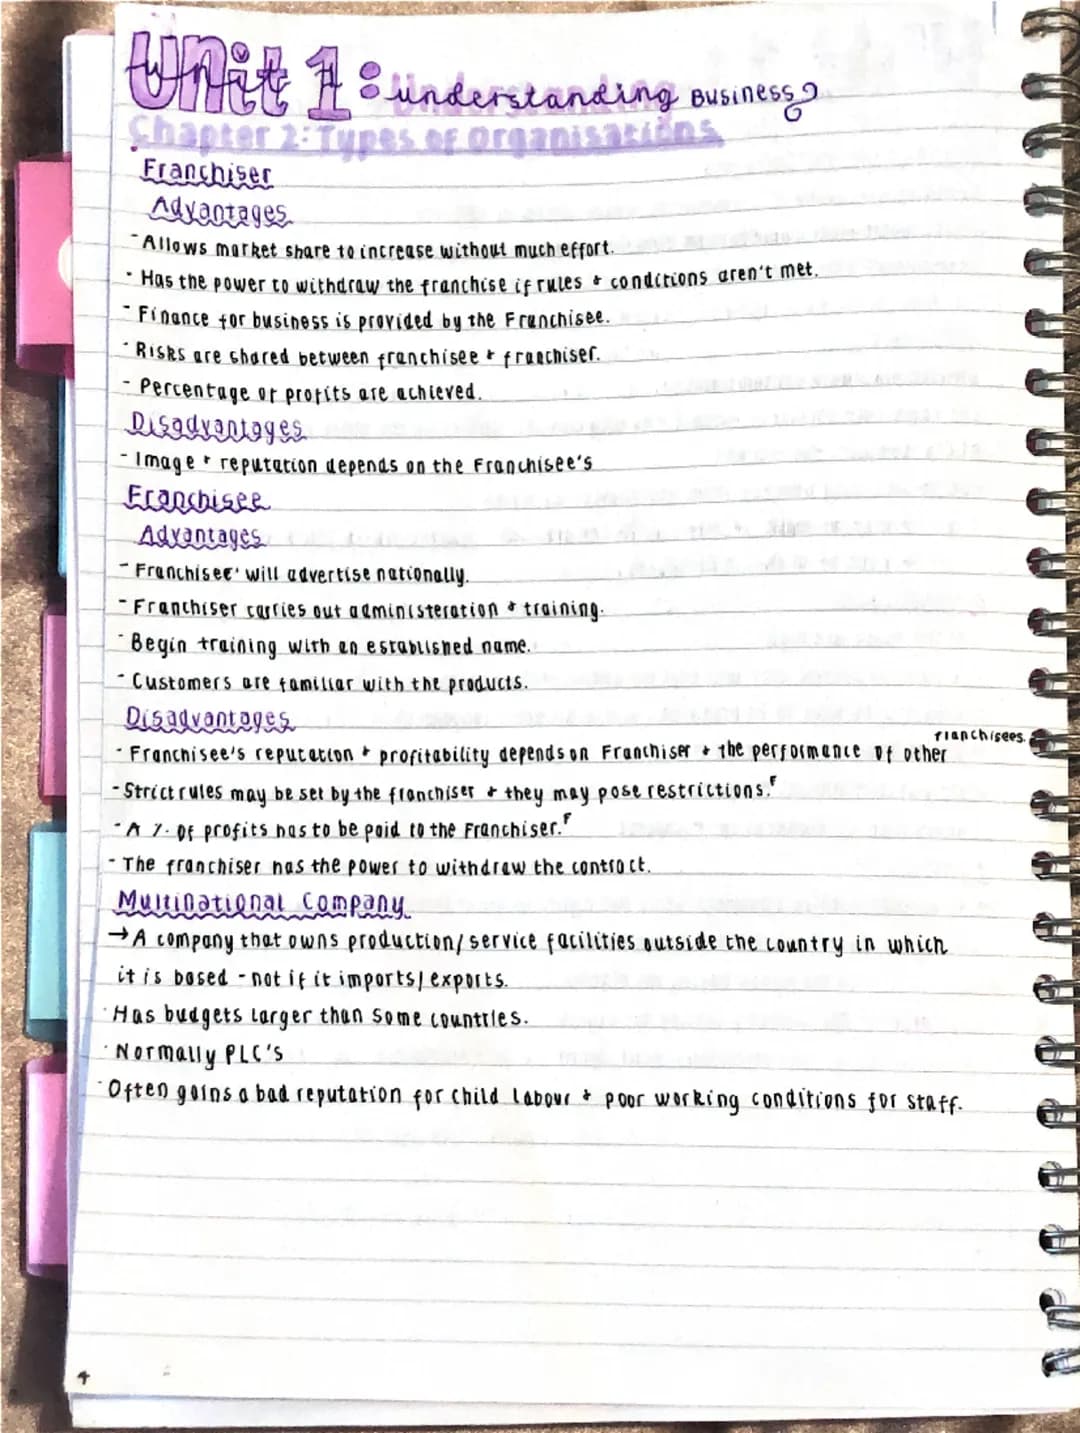 Unit 1: Understanding Business
Chapter 2: Types of Organisations
Franchiser
Advantages
- Allows market share to increase without much effort.
- Has the power to withdraw the franchise if rules + conditions aren't met.
- Finance for business is provided by the Franchisee.
- Risks are shared between franchisee + franchiser.
- Percentage of profits are achieved.
Disadvantages
- Image + reputation depends on the Franchisee's
Franchisee
Advantages
- Franchisee' will advertise nationally.
- Franchiser carries out administeration + training.
- Begin training with an established name.
- Customers are familiar with the products.
Disadvantages
- Franchisee's reputation + profitability depends on Franchiser + the performance of other franchisees.
- Strict rules may be set by the franchiser + they may pose restrictions.F
- A % of profits has to be paid to the Franchiser.F
- The franchiser has the power to withdraw the contract.
Multinational Company
→ A company that owns production/service facilities outside the country in which
it is based - not if it imports/exports.
· Has budgets larger than some countries.
· Normally PLC's
· Often gains a bad reputation for child labour + poor working conditions for staff.
4